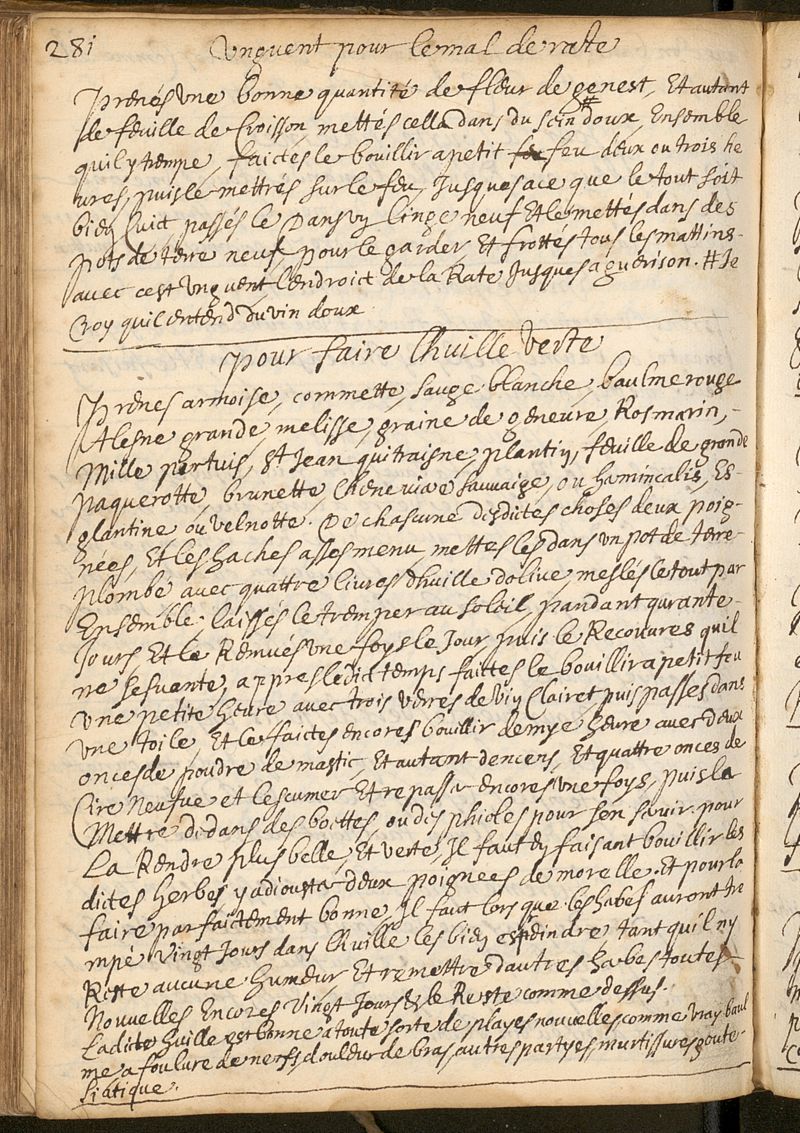 281
Unguent pour le mal de rate
Prenés une bonne quantité de fleur de genest, Et autant
de feuille de Croisson, mettés cella dans du sein # doux Ensemble
quil y trempe, faictes le bouillir a petit feu deux ou trois he
ures, puis le mettrés sur le feu, Jusques a ce que le tout soit
bien Cuict passés le Dans un linge neuf Et le mettes dans des
pots de terre neufs pour le garder Et frottés tous les mattins
avec cest Unguent lendroict de la Rate Jusques a guerison. # Je
Croy quil entend du vin doux
pour faire lhuille Verte
Prenes armoise, commette, sauge blanche, baulme rouge
Alesne grande, melisse, graine de geneure Rosmarin,
Mille pertuis, St Jean qui traisne, plantin, feuille de grande
paquerotte, brunette, Chenevixe sauvaige, ou haminealis, Es-
glantine, ou velnotte. De chascune desdites choses deux poig-
nées, Et les haches asses menu mettes les dans un pot de terre
plombé avec quattre livres dhuille dolive, meslés le tout par
Ensemble, laissés le tremper au soleil, pandant qurante
Jours Et le Remués une foys le Jour puis le Recouvres quil
ne sesvante, appres ledict temps faittes le bouillir a petit feu
une petite heure avec trois verres de vin Clairet puis passes dans
une toile, Et le faictes encores bouillir demye heure avec deux
onces de poudre de mastic, Et autant dencens, Et quattre onces de
Cire Neufue et lescumer Et repasser encores une foys, puis la
Mettre dedans des boettes, ou des phioles pour sen servir. pour
La Rendre plus belle, Et verte, Il faut En faisant bouillir les
dictes herbes y adiouster deux poignees de morelle. Et pour la
faire parfaictement bonne, Il faut lors que les habes auront tre
mpé Vingt Jours dans lhuille les bien espreindre tant quil ny
Reste aucune humeur Et remettre dautres habes toutes
Nouvelles Encores Vingt Jours & le Reste comme dessus.
Ladite huille est bonne a toute sorte de playes nouvelles comme vray baul
me a foulure de nerfs douleur de bras autres partyes murtissures goute
siatique.